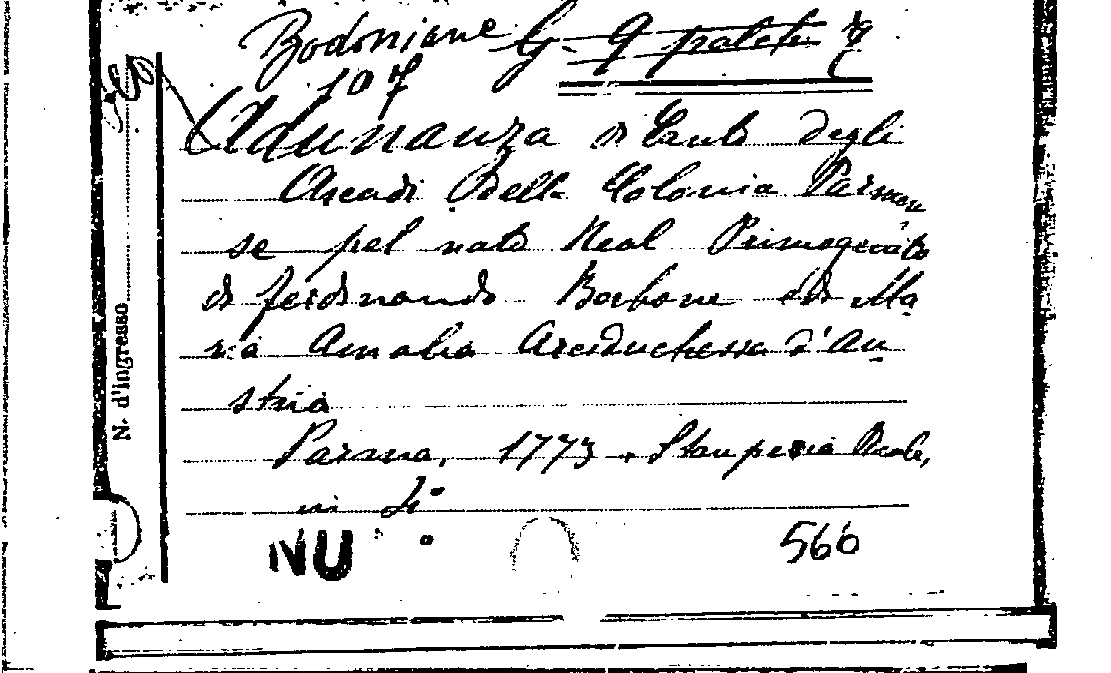 Bodoniane G-9 palch
107
Adunanza di Canto degli
Arcadi Della Colonia Parmen
se pel nato Real Primogenito
di Ferdinando Borbone e di Ma
ria Amalia Arciduchessa d'Au
stria
Parma, 1773. Stamperia Reale,
in 4°
NU 560
N. d'ingresso